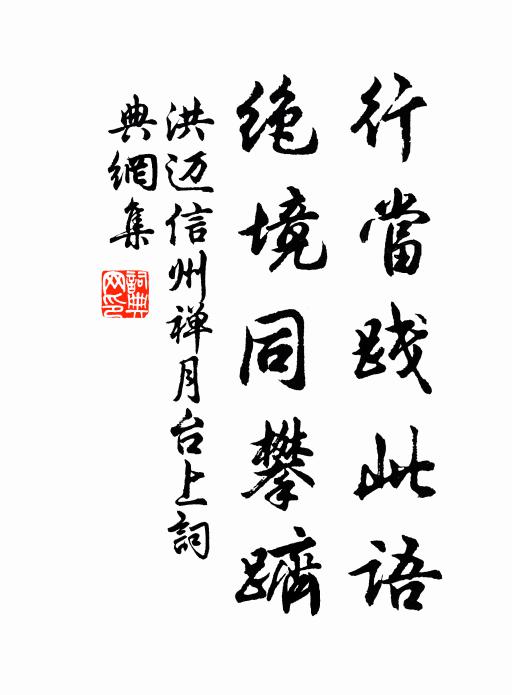 行當践此語
絶境同攀躋
洪迈信州禅月台上詞
典網集
詞典
网印